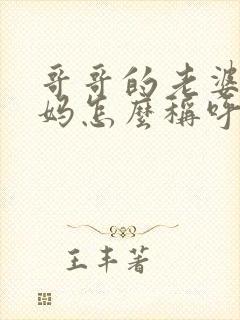 哥哥的老婆
妈怎麽稱呼
王丰著